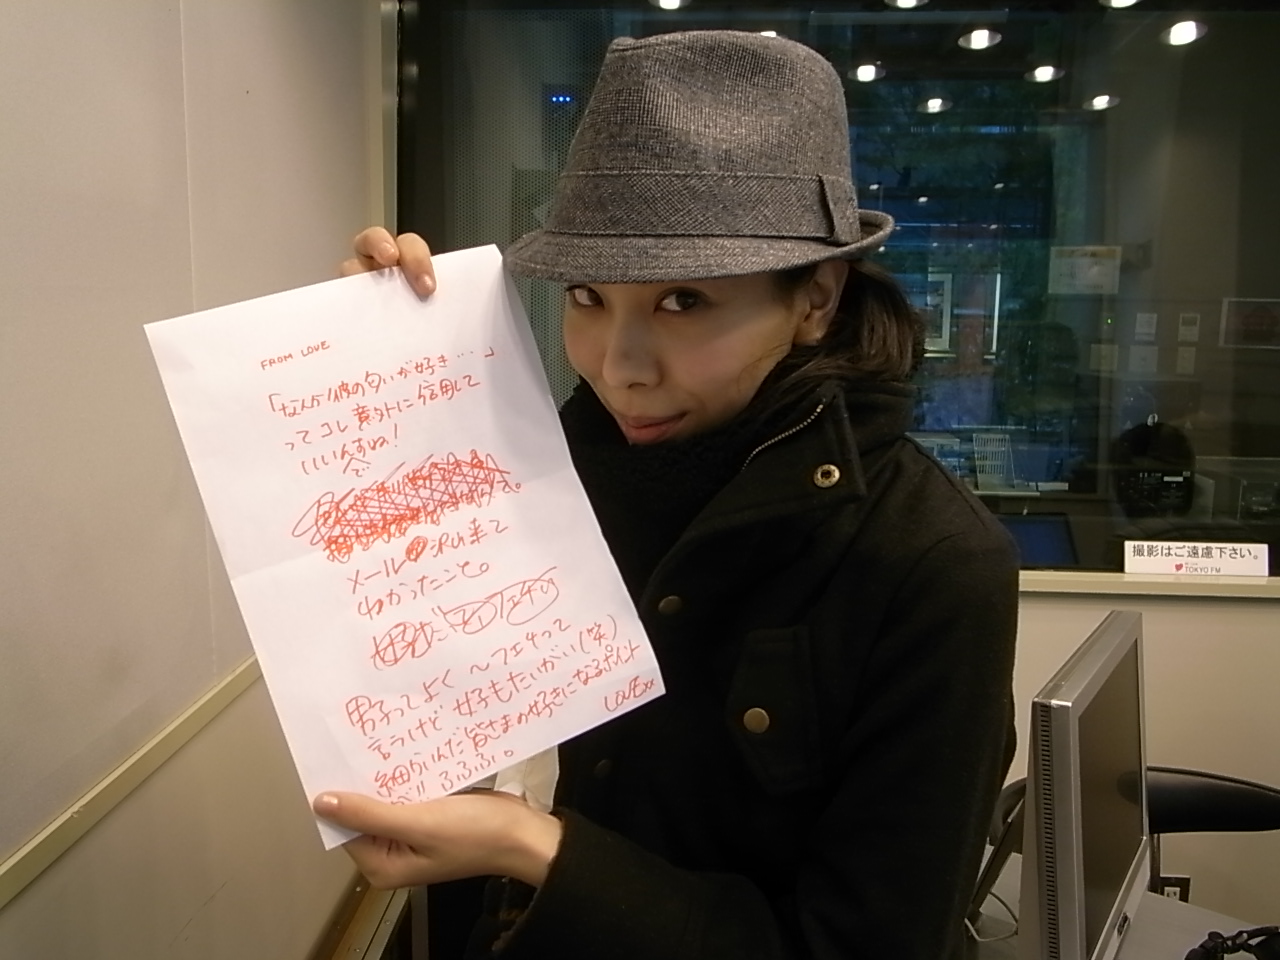 FROM LOVE
「なんか彼の匂いが好き…」
ってコレ意外に信用して
いいんすね！
で
メール 沢山来て
わかったこと。
男子ってよく 〜フェチって
言うけど 女子もたいがい(笑)
細らいんだ皆さまの好きになるポイント
が!! ふふふ。
LOVExx
撮影はご遠慮下さい。
TOKYO FM